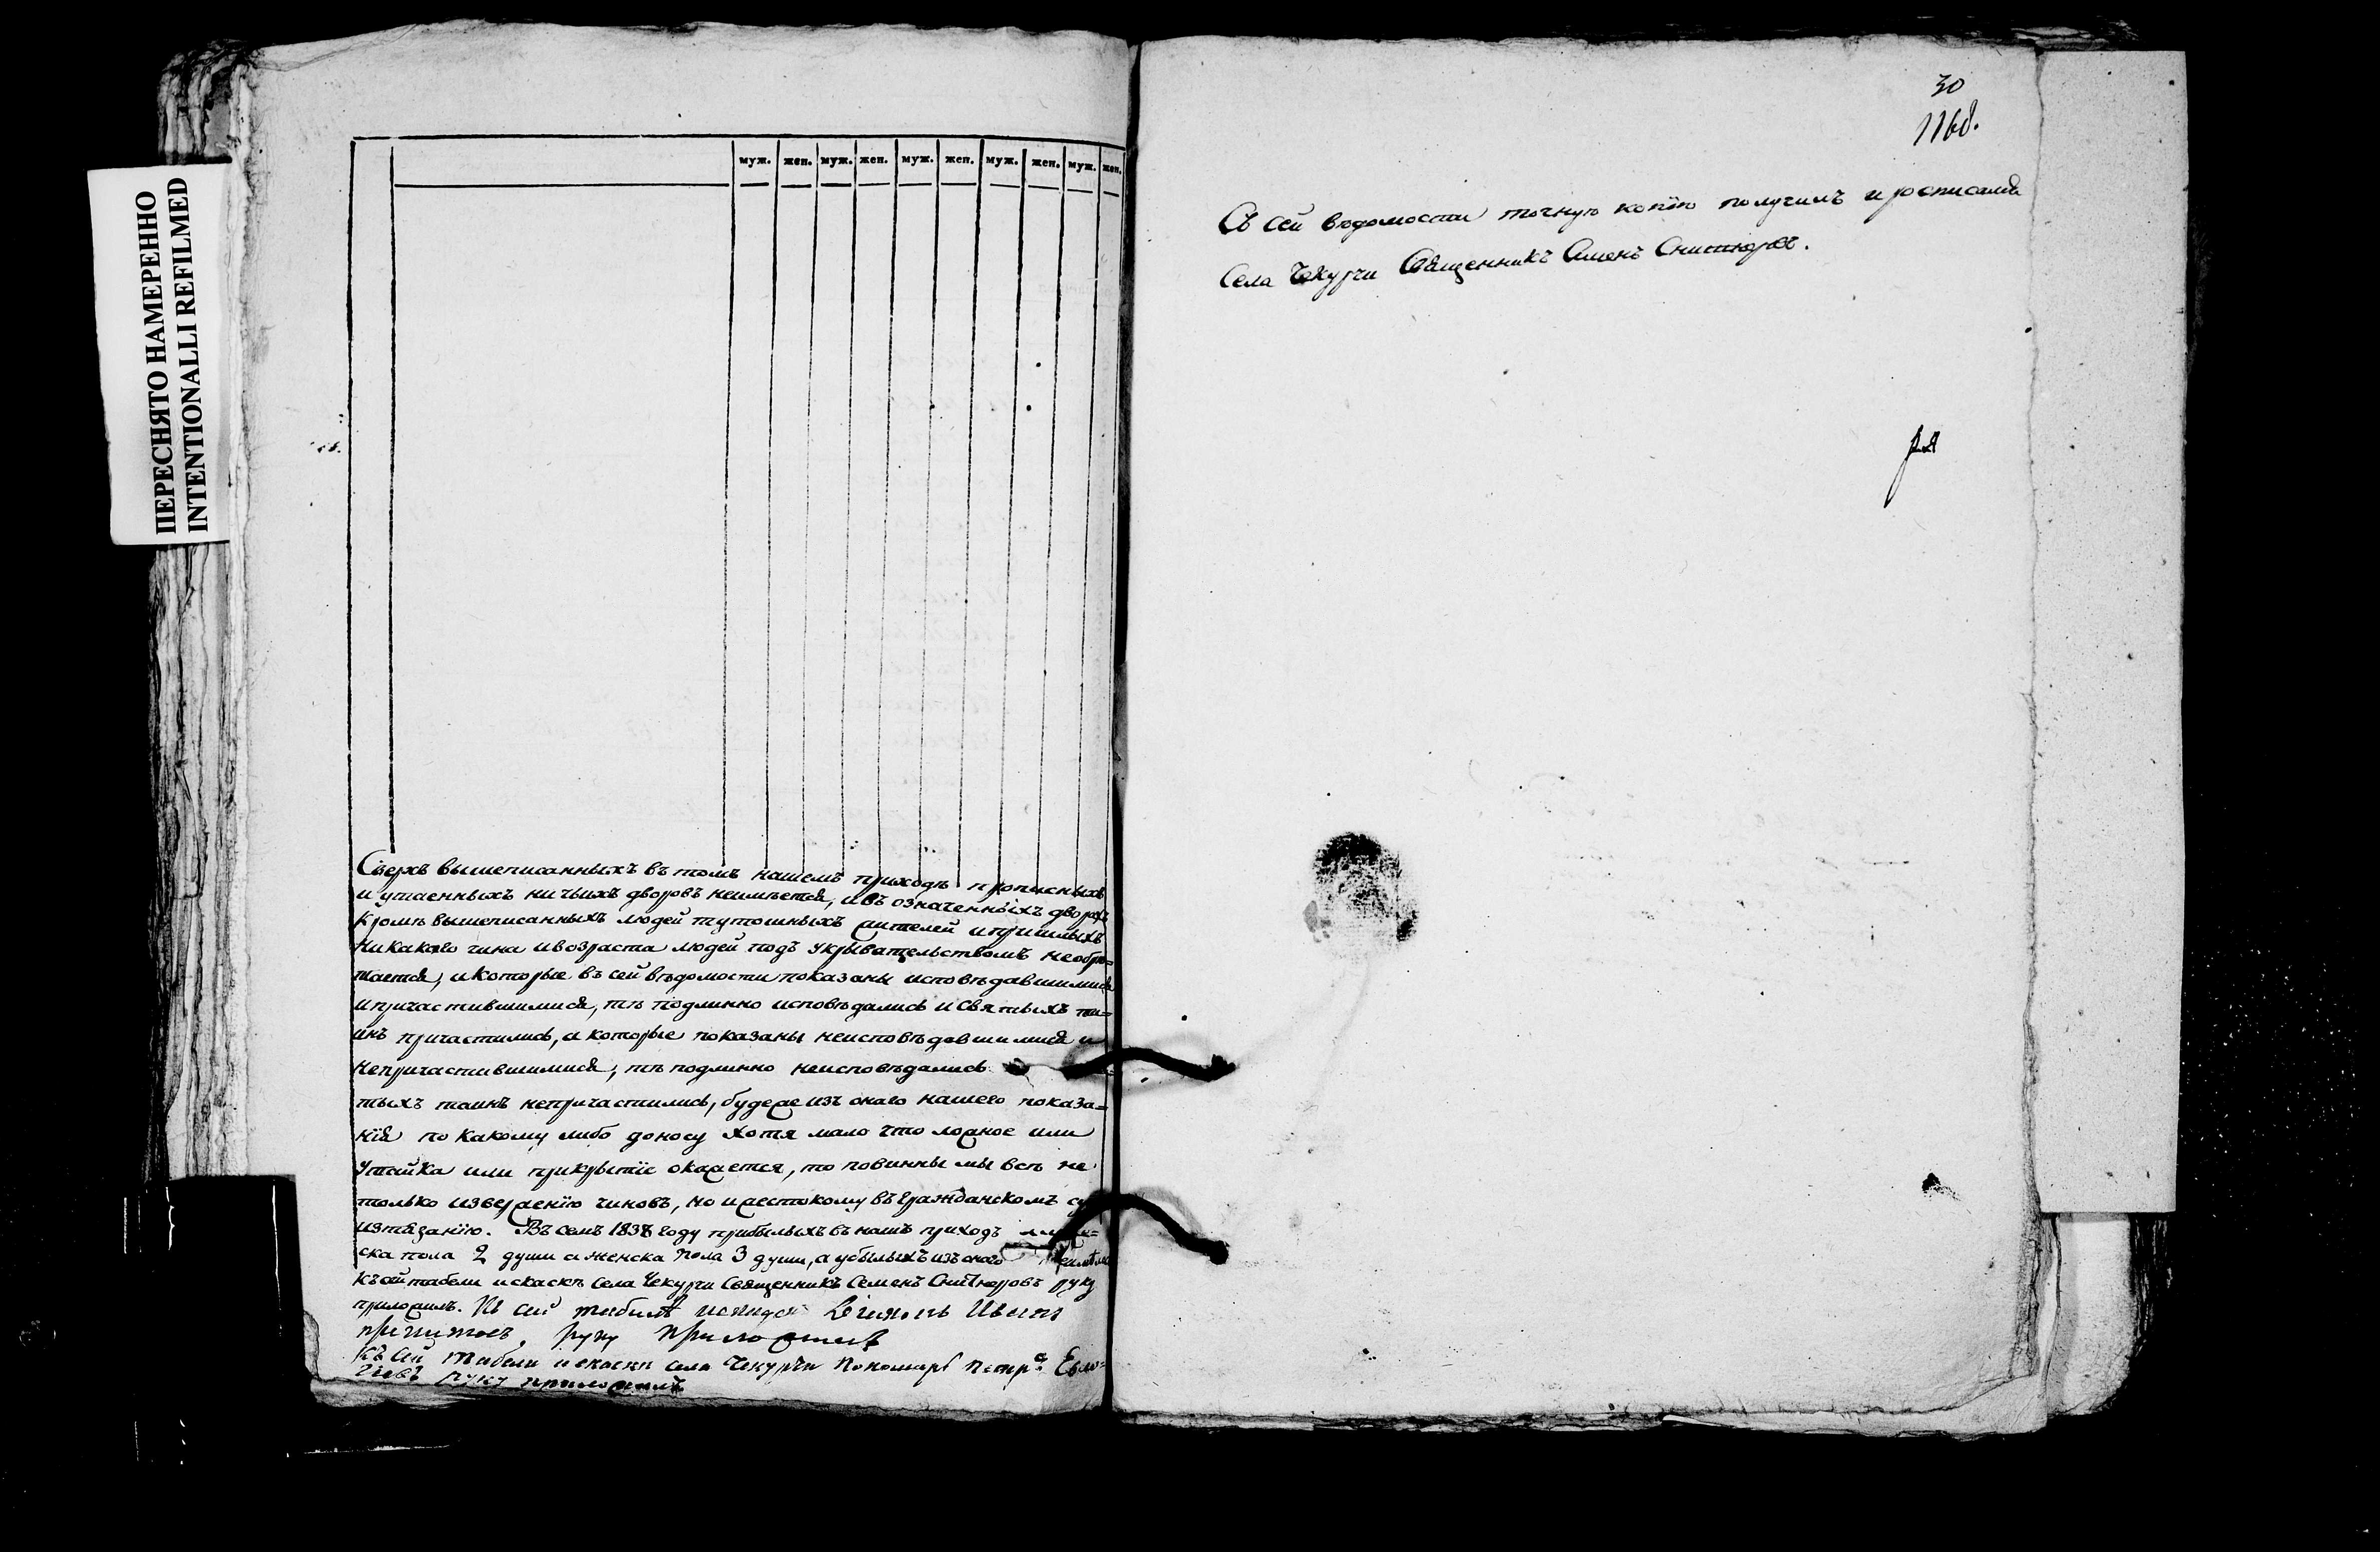 ПЕРЕСНЯТО НАМЕРЕННО
INTENTIONALLI REFILMED
муж. жен. муж. жен. муж. жен. муж. жен. муж. жен.
Сверхъ вышеписанныхъ въ томъ нашемъ приходѣ прописныхъ
и утаенныхъ ничьихъ дворовъ неимѣется, и въ означенныхъ дворахъ
кромѣ вышеписанныхъ людей тутошныхъ жителей и пришлыхъ
никакого чина и возраста людей подъ укрывательствомъ необрѣ=
тается, и которые въ сей вѣдомости показаны исповѣдавшимися
и причастившимися, тѣ подлинно исповѣдались и святыхъ та=
инъ причастились, а которые показаны неисповѣдавшимися и
непричастившимися, тѣ подлинно неисповѣдались
тыхъ таинъ непричастились, буде же изъ онаго нашего показа=
нія по какому либо доносу хотя мало что ложное или
утайка или прикрытіе окажется, то повинны мы всѣ не
только изверженію чиновъ, но и жестокому въ гражданскомъ су
истязанію. Въ семъ 1838 году прибылыхъ въ нашъ приходъ
ска пола 2 души а женска пола 3 души, а убылыхъ изъ онаго
Къ сей табели и скаскѣ села Чекурчи Священникъ Семенъ руку
приложилъ. Къ сей табелѣ Ивanъ
причитосъ руку приложилъ
Къ сей табели и скаски села Чекурчи Пономарь Петръ Евло=
гіевъ руку приложилъ
30
1168.
Съ сей вѣдомости точную копію получилъ и росписался
Села Чекурчи Священникъ Семенъ